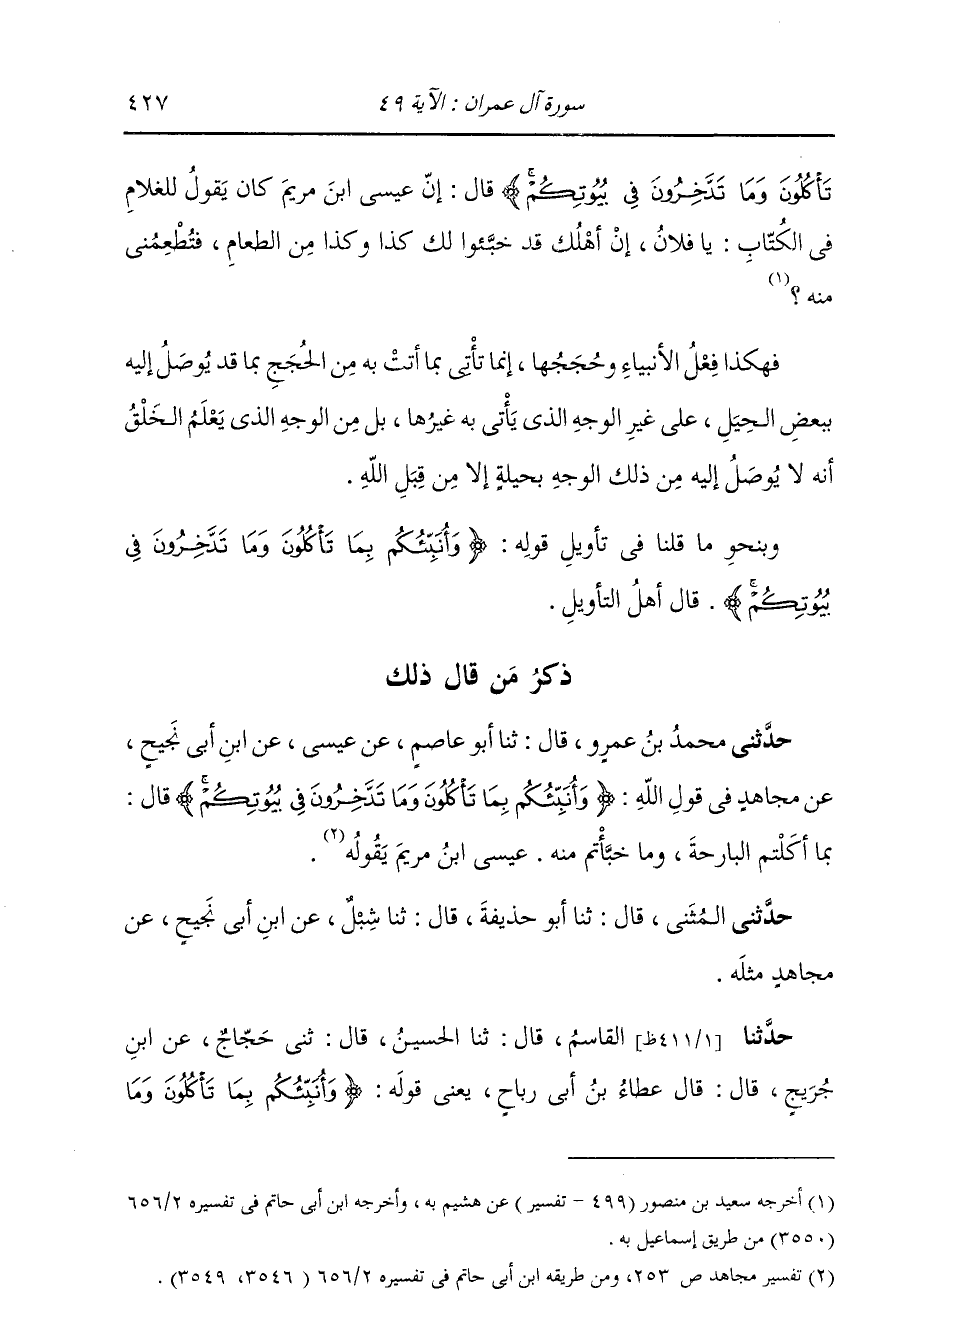 سورة آل عمران : الآية ٤٩ ٤٢٧
تَأْكُلُونَ وَمَا تَدَّخِرُونَ فِى بُيُوتِكُمْۚ ﴾ قال : إنّ عيسى ابنَ مريمَ كان يَقولُ للغلامِ
فى الكُتّابِ : يا فلانُ ، إنْ أهْلُك قد خبَّئوا لك كذا وكذا مِن الطعامِ ، فتُطْعِمُنى
منه ؟(١)
فهكذا فِعْلُ الأنبياءِ وحُجَجُها ، إنما تأْتِى بما أتتْ به مِن الحُجَجِ بما قد يُوصَلُ إليه
ببعضِ الحِيَلِ ، على غيرِ الوجهِ الذى يَأْتى به غيرُها ، بل مِن الوجهِ الذى يَعْلَمُ الخَلْقُ
أنه لا يُوصَلُ إليه مِن ذلك الوجهِ بحيلةٍ إلا مِن قِبَلِ اللَّهِ .
وبنحوِ ما قلنا فى تأويلِ قولِه : ﴿ وَأُنَبِّئُكُم بِمَا تَأْكُلُونَ وَمَا تَدَّخِرُونَ فِى
بُيُوتِكُمْۚ ﴾ . قال أهلُ التأويلِ .
ذكرُ مَن قال ذلك
حدَّثنى محمدُ بنُ عمرٍو ، قال : ثنا أبو عاصمٍ ، عن عيسى ، عن ابنِ أبى نَجيحٍ ،
عن مجاهدٍ فى قولِ اللَّهِ : ﴿ وَأُنَبِّئُكُم بِمَا تَأْكُلُونَ وَمَا تَدَّخِرُونَ فِى بُيُوتِكُمْۚ ﴾ قال :
بما أكَلْتم البارحةَ ، وما خبَّأْتم منه . عيسى ابنُ مريمَ يَقُولُه(٢) .
حدَّثنى المُثَنى ، قال : ثنا أبو حذيفةَ ، قال : ثنا شِبْلٌ ، عن ابنِ أبى نَجيحٍ ، عن
مجاهدٍ مثلَه .
حدَّثنا [٤١١/١ظ] القاسمُ ، قال : ثنا الحسينُ ، قال : ثنى حَجّاجٌ ، عن ابنِ
جُرَيجٍ ، قال : قال عطاءُ بنُ أبى رباحٍ ، يعنى قولَه : ﴿ وَأُنَبِّئُكُم بِمَا تَأْكُلُونَ وَمَا
(١) أخرجه سعيد بن منصور (٤٩٩ - تفسير ) عن هشيم به ، وأخرجه ابن أبى حاتم فى تفسيره ٦٥٦/٢
(٣٥٥٠) من طريق إسماعيل به .
(٢) تفسير مجاهد ص ٢٥٣، ومن طريقه ابن أبى حاتم فى تفسيره ٦٥٦/٢ ( ٣٥٤٦، ٣٥٤٩) .